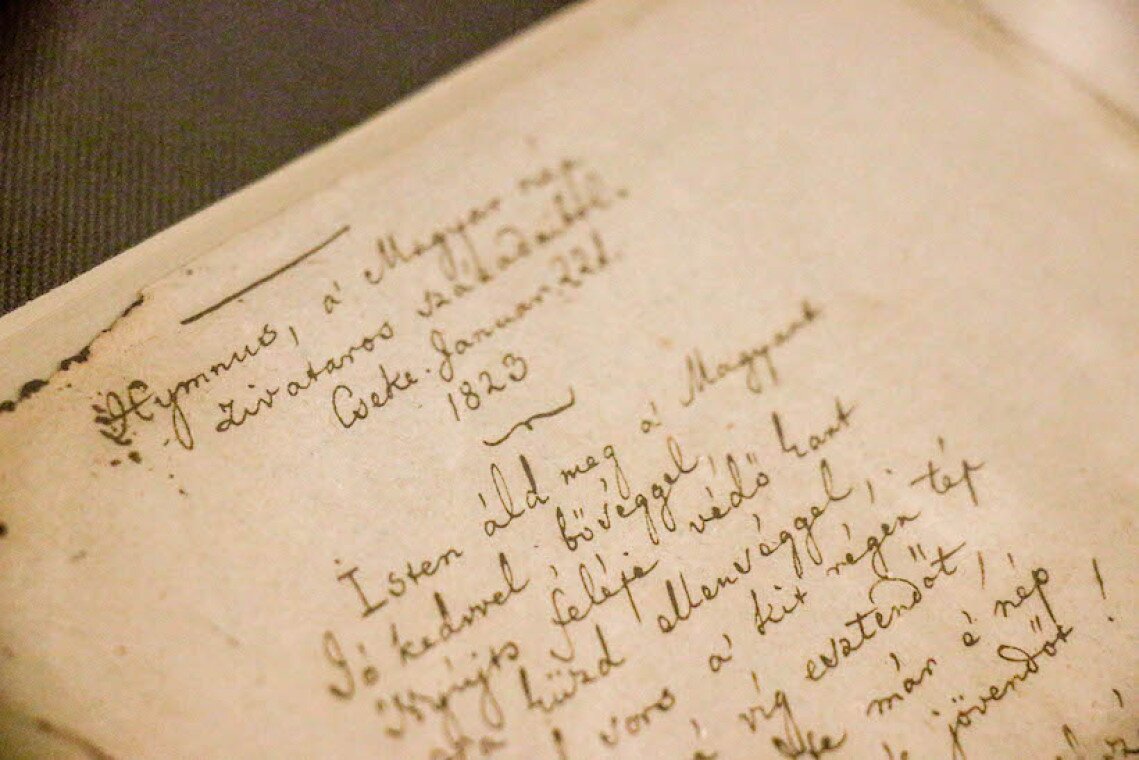 Hymnus, a' Magyar nép
zivataros századaiból.
Cseke. Januar. 22d.
1823
Isten áld meg a' Magyart
Jó kedvvel, bőséggel,
Nyújts feléje védő kart
Ha küzd ellenséggel,
sors a' kit régen tép
víg esztendőt,
már e' nép
jövendőt!